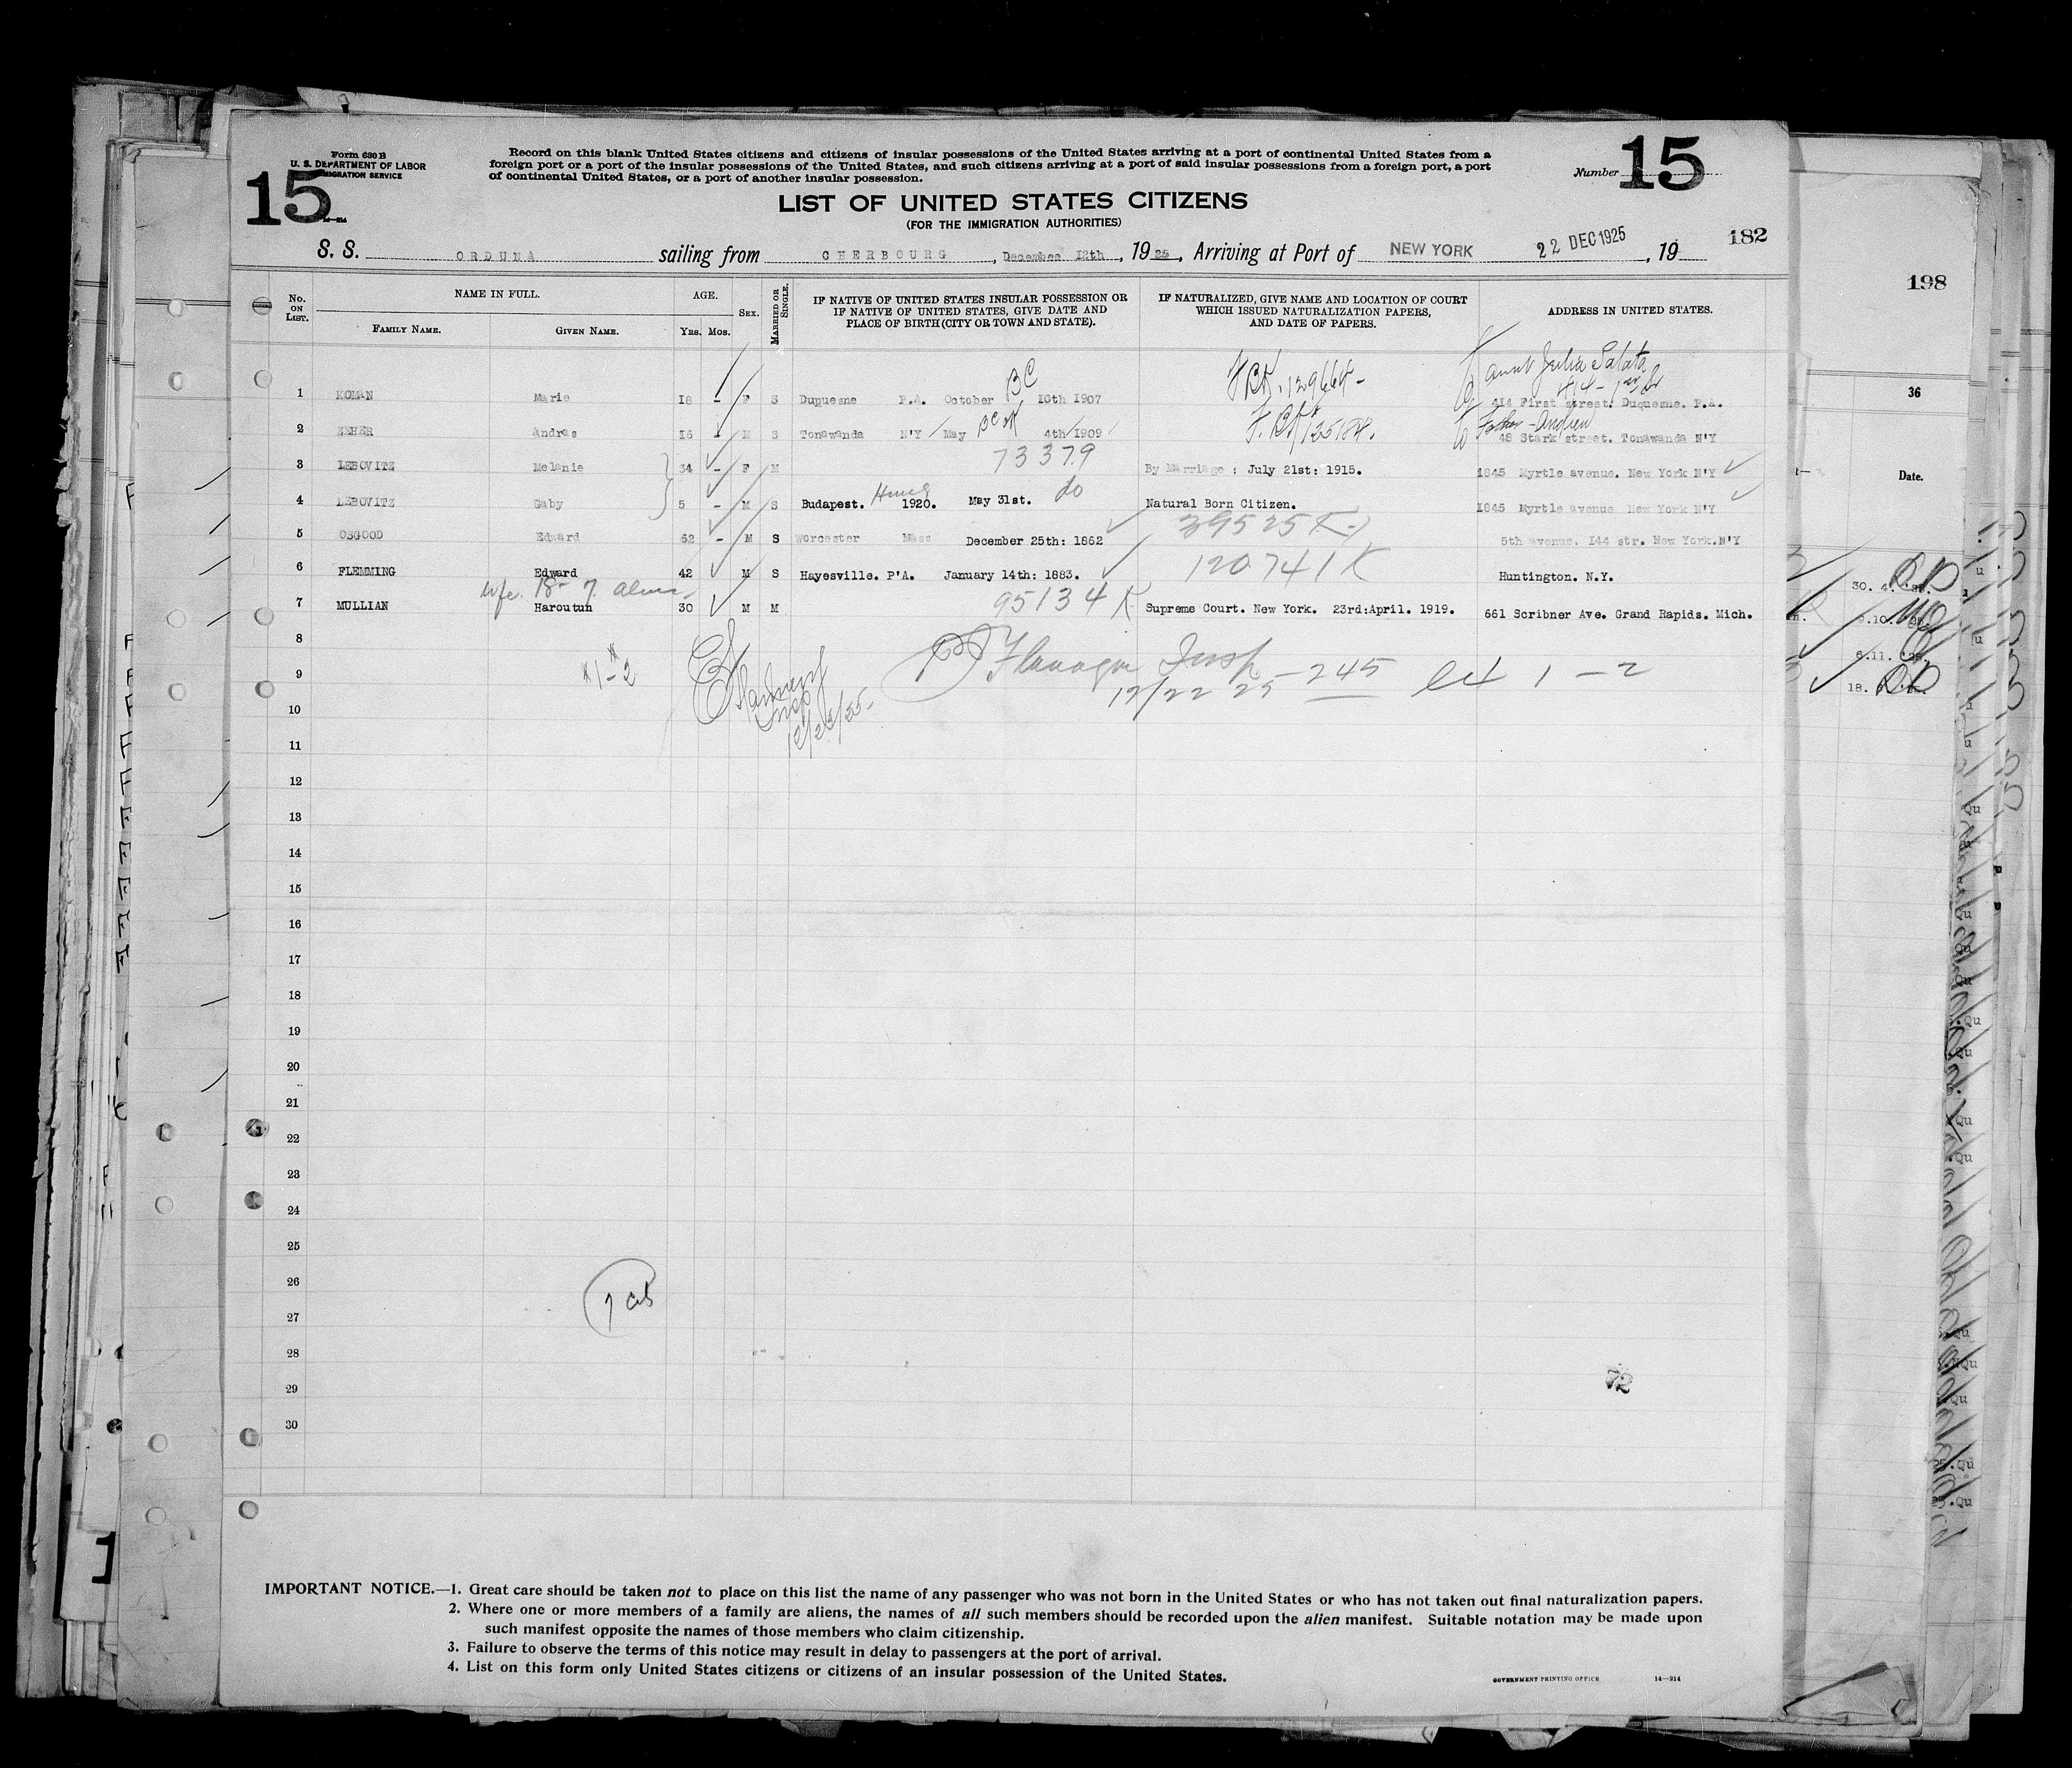 Form 630 B
U. S. DEPARTMENT OF LABOR
IMMIGRATION SERVICE
15
14—214
Record on this blank United States citizens and citizens of insular possessions of the United States arriving at a port of continental United States from a
foreign port or a port of the insular possessions of the United States, and such citizens arriving at a port of said insular possessions from a foreign port, a port
of continental United States, or a port of another insular possession.
Number 15
LIST OF UNITED STATES CITIZENS
(FOR THE IMMIGRATION AUTHORITIES)
182
S. S. ORDUNA sailing from CHERBOURG, December 12th, 1925, Arriving at Port of NEW YORK 22 DEC 1925, 19
198
No. ON LIST. NAME IN FULL. AGE. SEX. MARRIED OR SINGLE. IF NATIVE OF UNITED STATES INSULAR POSSESSION OR IF NATIVE OF UNITED STATES, GIVE DATE AND PLACE OF BIRTH (CITY OR TOWN AND STATE). IF NATURALIZED, GIVE NAME AND LOCATION OF COURT WHICH ISSUED NATURALIZATION PAPERS, AND DATE OF PAPERS. ADDRESS IN UNITED STATES.
FAMILY NAME. GIVEN NAME. YRS. MOS.
BC Aunt Julia Salata
414 - 1st St
1 KOMAN Marie 18 - F S Duquesne P.A. October 10th 1907 414 First street. Duquesne. P.A.
36
Father - Andrew
2 ZEHER Andras 16 - M S Tonawanda N'Y May 4th 1909 48 Stark street. Tonawanda N'Y
73379
3 LEBOVITZ Melanie 34 - F M By Marriage : July 21st: 1915. 1845 Myrtle avenue. New York N'Y
Date.
4 LEBOVITZ Gaby 5 - M S Budapest. Hung 1920. May 31st. do Natural Born Citizen. 1845 Myrtle avenue New York N'Y
39525 K
5 OSGOOD Edward 62 - M S Worcester Mass December 25th: 1862 5th avenue. 144 str. New York.N'Y
120741 K
6 FLEMMING Edward 42 M S Hayesville. P'A. January 14th: 1883. Huntington. N.Y.
30. 4.
wife 18 - 7 alien
95134 K
7 MULLIAN Haroutun 30 M M Supreme Court. New York. 23rd:April. 1919. 661 Scribner Ave. Grand Rapids. Mich.
8
6.11.
Flanagan Insp 245 let 1 - 2
9 #1-2
12/22 25
18.
10
Insp
12/22/25
11
12
13
14
15
16
17
18
19
20
21
22
23
24
25
26
7
27
28
29
72
30
IMPORTANT NOTICE.—1. Great care should be taken not to place on this list the name of any passenger who was not born in the United States or who has not taken out final naturalization papers.
2. Where one or more members of a family are aliens, the names of all such members should be recorded upon the alien manifest. Suitable notation may be made upon
such manifest opposite the names of those members who claim citizenship.
3. Failure to observe the terms of this notice may result in delay to passengers at the port of arrival.
4. List on this form only United States citizens or citizens of an insular possession of the United States.
GOVERNMENT PRINTING OFFICE 14—214